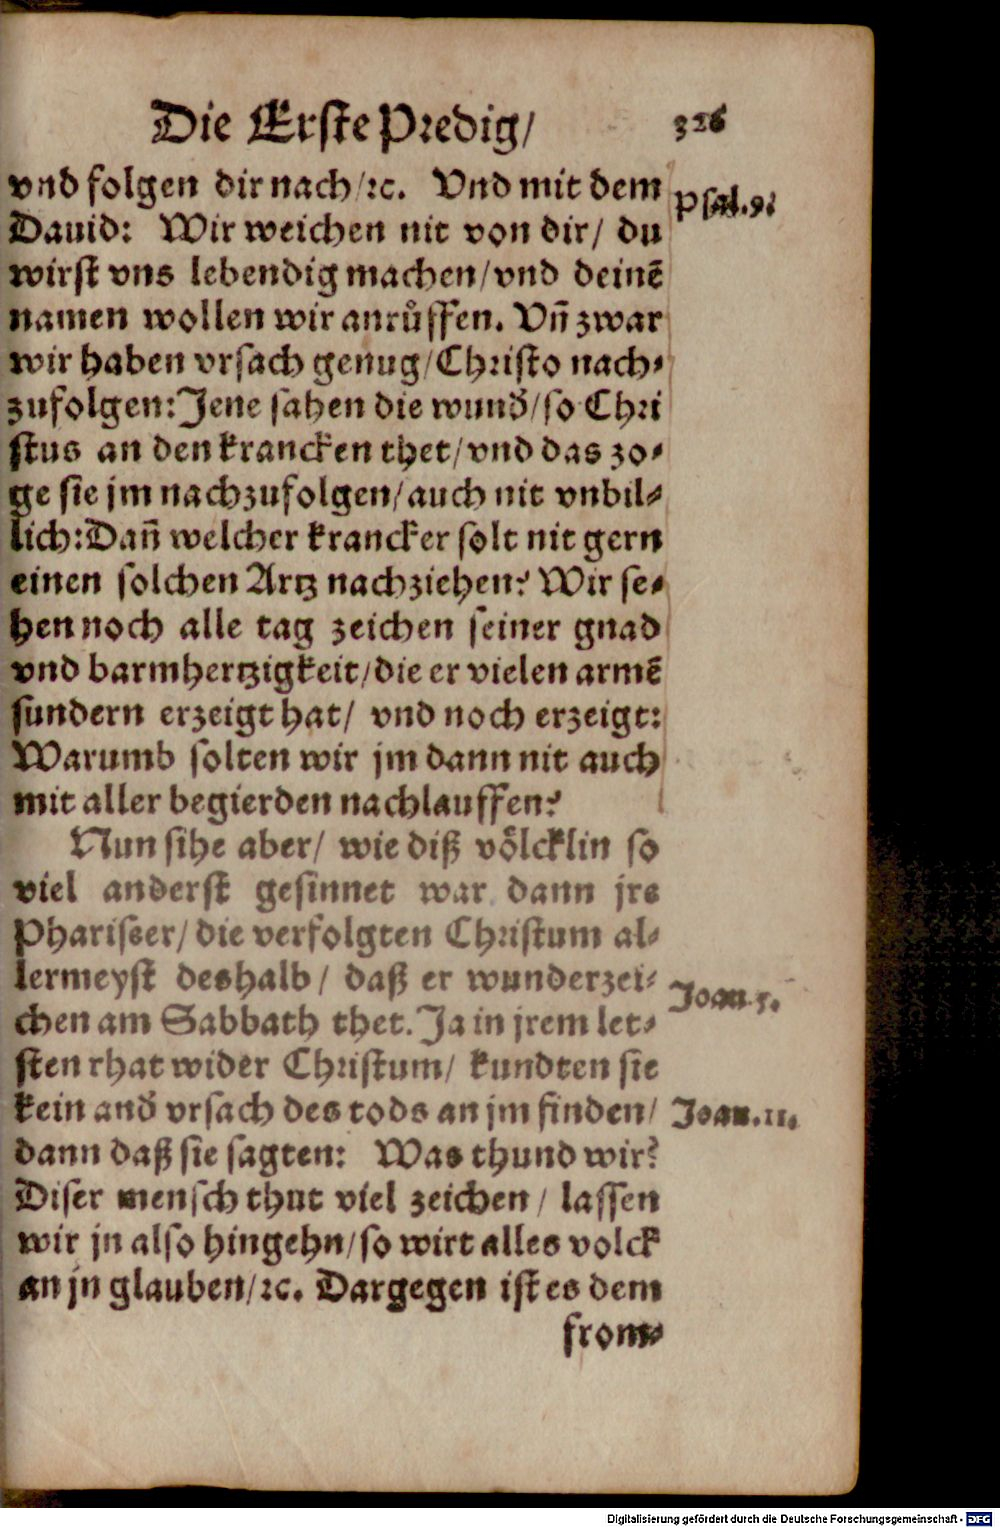 Die Erste Predig/ 326
vnd folgen dir nach/ꝛc. Vnd mit dem
Psal.
Dauid: Wir weichen nit von dir/ du
wirst vns lebendig machen/vnd deinē
namen wollen wir anrůffen. Vñ zwar
wir haben vrsach genug/Christo nach-
zufolgen:Jene sahen die wund̃/so Chri
stus an den krancken thet/vnd das zo-
ge sie jm nachzufolgen/auch nit vnbil-
lich:Dañ welcher krancker solt nit gern
einen solchen Artz nachziehen? Wir se-
hen noch alle tag zeichen seiner gnad
vnd barmhertzigkeit/die er vielen armē
sundern erzeigt hat/ vnd noch erzeigt:
Warumb solten wir jm dann nit auch
mit aller begierden nachlauffen?
Nun sihe aber/ wie diß völcklin so
viel anderst gesinnet war dann jre
Phariseer/die verfolgten Christum al-
lermeyst deshalb/ daß er wunderzei-
Joan.5.
chen am Sabbath thet. Ja in jrem let-
sten rhat wider Christum/ kundten sie
kein and̃ vrsach des tods an jm finden/
Joan.11.
dann daß sie sagten: Was thund wir?
Diser mensch thut viel zeichen/ lassen
wir jn also hingehn/so wirt alles volck
an jn glauben/ꝛc. Dargegen ist es dem
from-
Digitalisierung gefördert durch die Deutsche Forschungsgemeinschaft - DFG